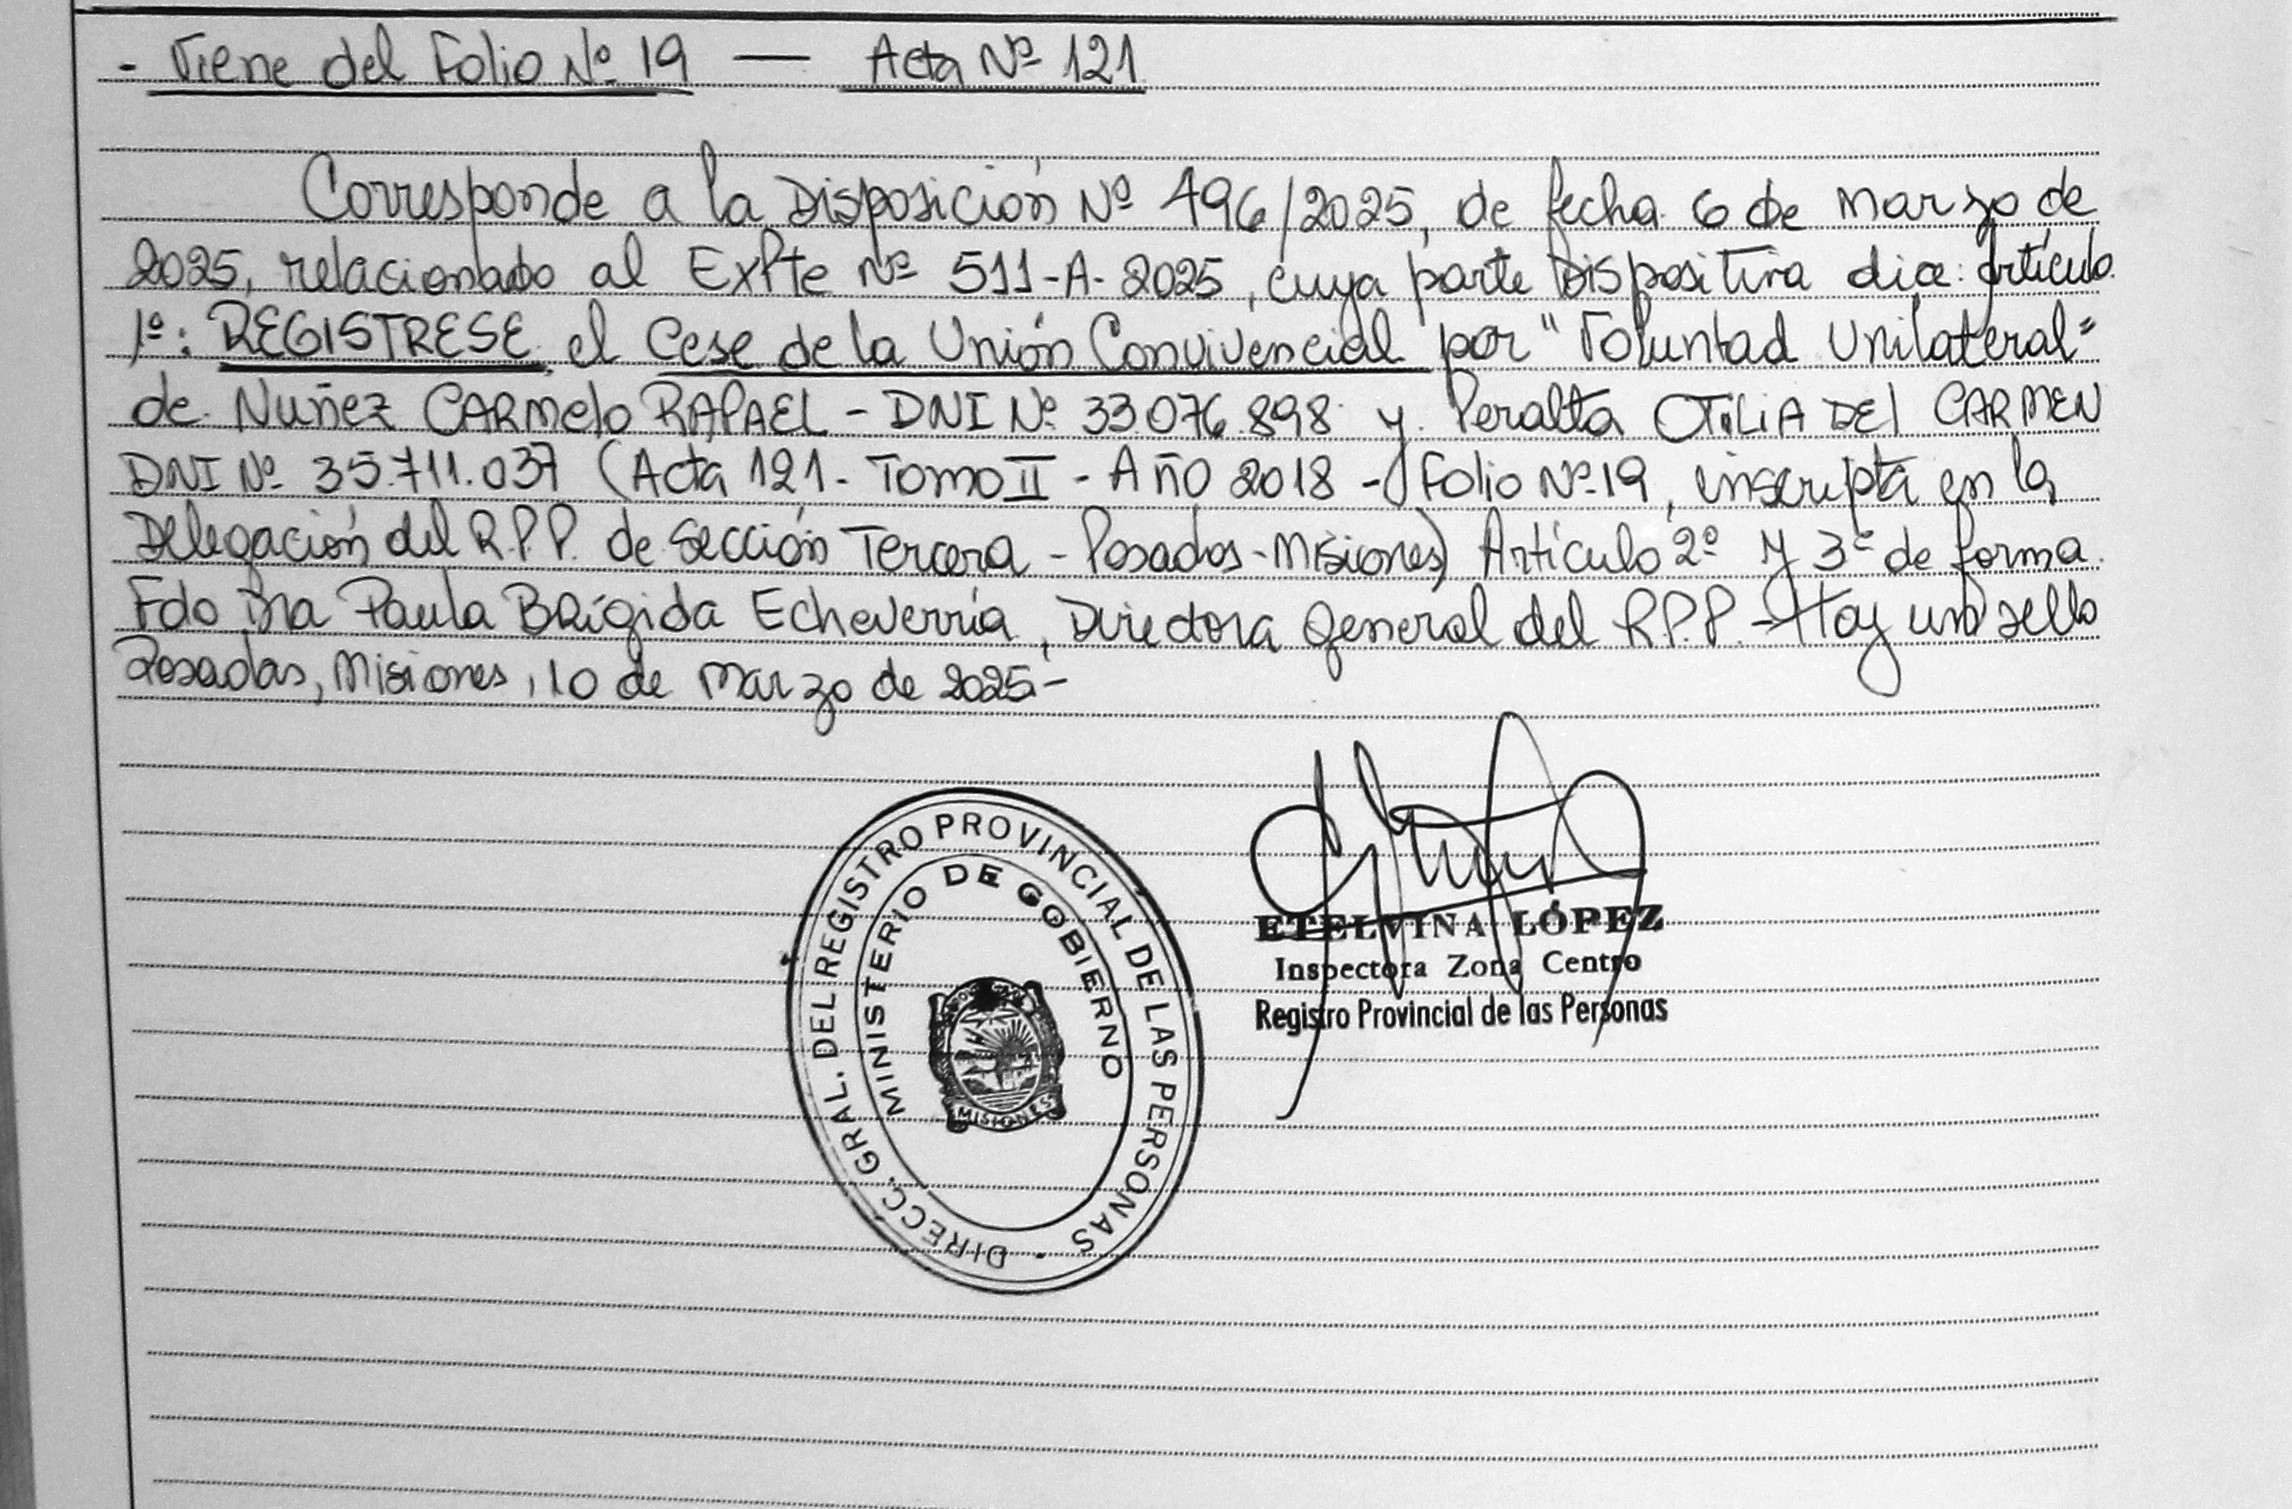 - Viene del Folio Nº 19 — Acta Nº 121
Corresponde a la Disposición Nº 496/2025, de fecha 6 de Marzo de
2025, relacionado al Expte Nº 511-A-2025, cuya parte Dispositiva dice: Artículo
1º: REGISTRESE, el Cese de la Unión Convivencial por "Voluntad Unilateral"
de Nuñez CARMelo RAFAEL - DNI Nº 33.076.898 y Peralta OTILIA DEl CARMEN
DNI Nº 35.711.037 (Acta 121 - Tomo II - Año 2018 - Folio Nº 19, inscripta en la
Delegación del R.P.P. de Sección Tercera - Posadas - Misiones) Artículo 2º y 3º de forma.
Fdo Dra Paula Brígida Echeverría, Directora General del R.P.P. - Hay un sello
Posadas, Misiones, 10 de Marzo de 2025.-
DIRECC. GRAL. DEL REGISTRO PROVINCIAL DE LAS PERSONAS
MINISTERIO DE GOBIERNO
MISIONES
ETELVINA LÓPEZ
Inspectora Zona Centro
Registro Provincial de las Personas